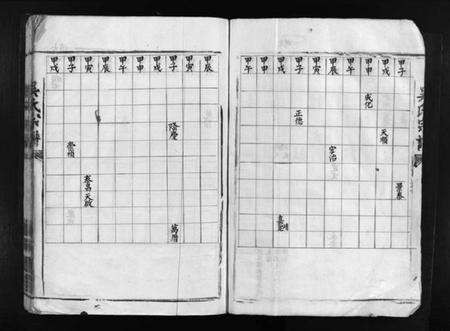 吳氏宗譜
甲子
景泰
甲戌
天順
甲申
成化
甲午
甲辰
弘治
甲寅
甲子
正德
甲戌
嘉靖
甲申
甲午
甲辰
甲寅
甲子
隆慶
萬曆
甲戌
甲申
甲午
甲辰
甲寅
泰昌天啟
甲子
崇禎
甲戌
吳氏宗譜